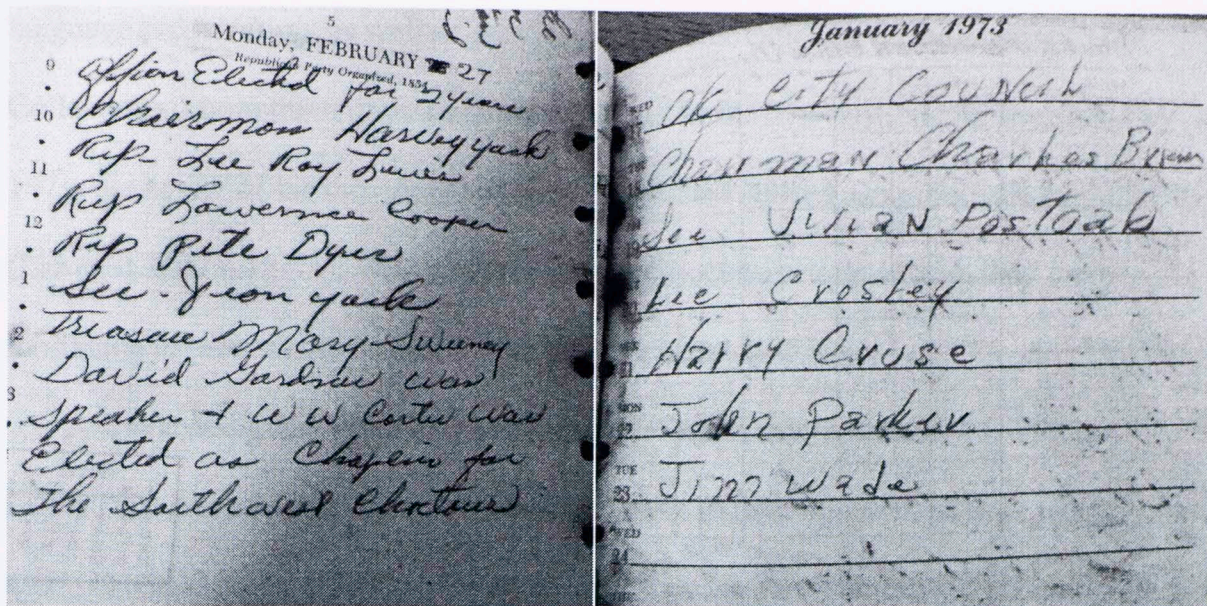 5
Monday, FEBRUARY 27
Republican Party Organized, 1854
9 Offion Elected for 2 years
10 Chairman Harvey York
Rep- Lee Roy Lewis
11
Rep Lowernce Cooper
12
Rep Pete Dyer
1 Sec- Jeon York
2 Treasure Mary Sweeney
David Gardner was
3 Speaker + W W Carter was
Elected as Chaplin for
The Southwest Choctaws
January 1973
WED OK City Council
Chairman Charles Brown
18
Sec Vivian Postoak
19
Lee Crosley
Harry Cruse
21
MON John Parker
22
TUE Jim Wade
23
WED
24